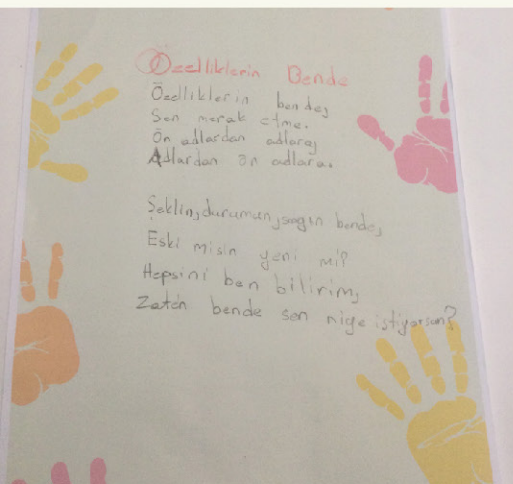 Özelliklerin Bende
Özelliklerin bende,
Sen merak etme.
Ön adlardan adlara,
Adlardan ön adlara.
Şeklin, durumun, sayın bende,
Eski misin yeni mi?
Hepsini ben bilirim,
Zaten bende sen niye istiyorsun?